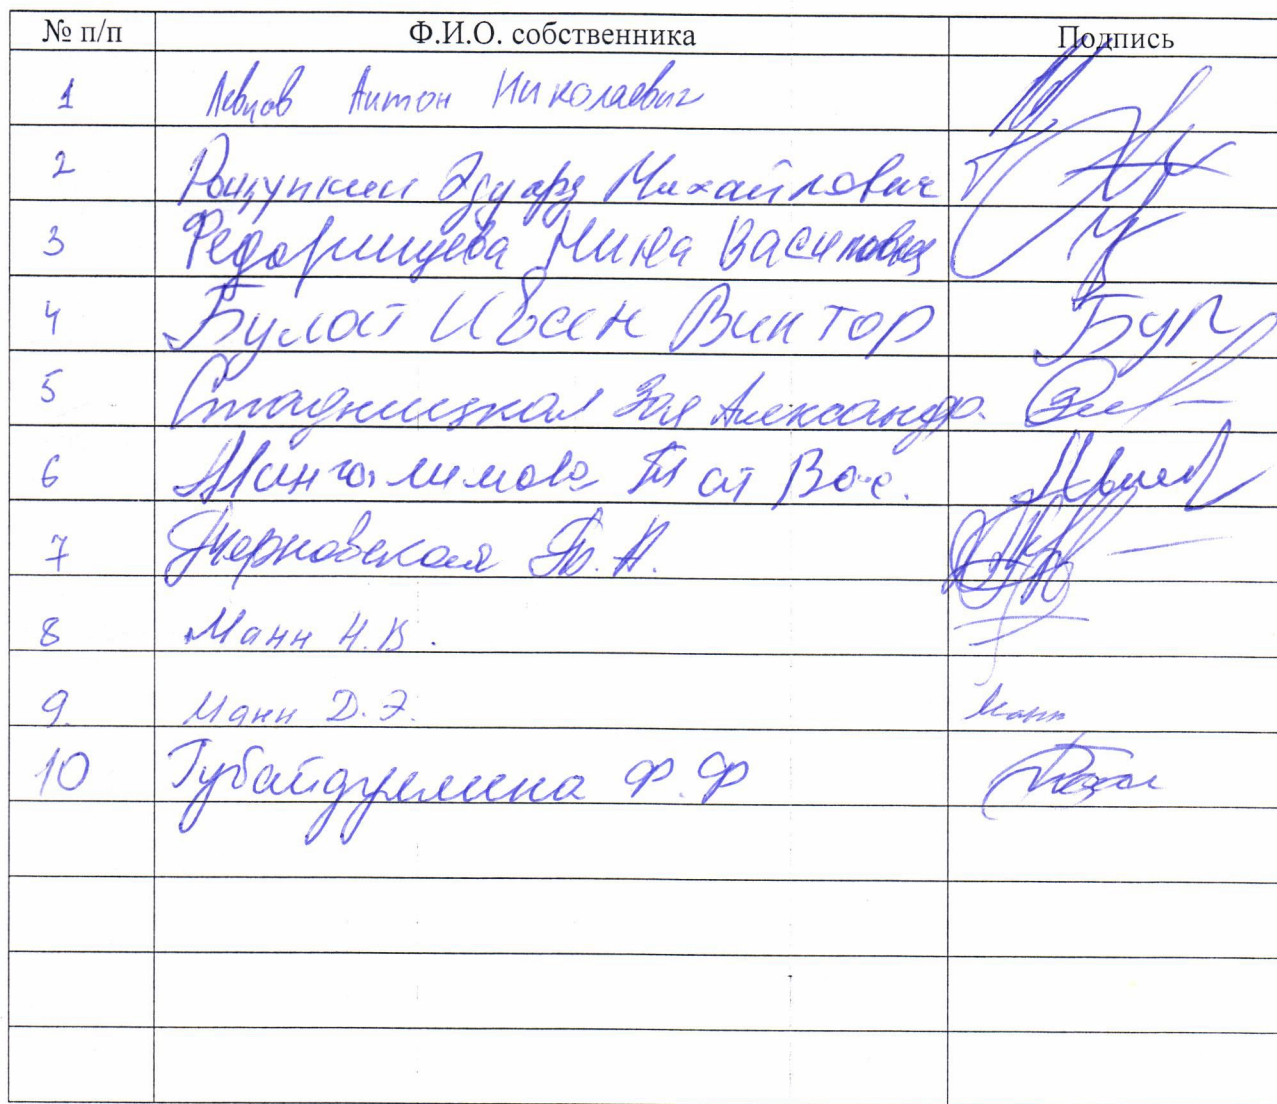 № п/п Ф.И.О. собственника Подпись
1 Левцов Антон Николаевич
2 Рощупкин Эдуард Михайлович
3 Федорищева Нина
4 Булат Виктор Бул
5 Стадницкая Зоя Александр.
6 Мингалимова Тат Вас.
7 Черновская
8 Манн Н.В.
9. Манн Д.Э. Манн
10 Губайдуллина Ф.Ф